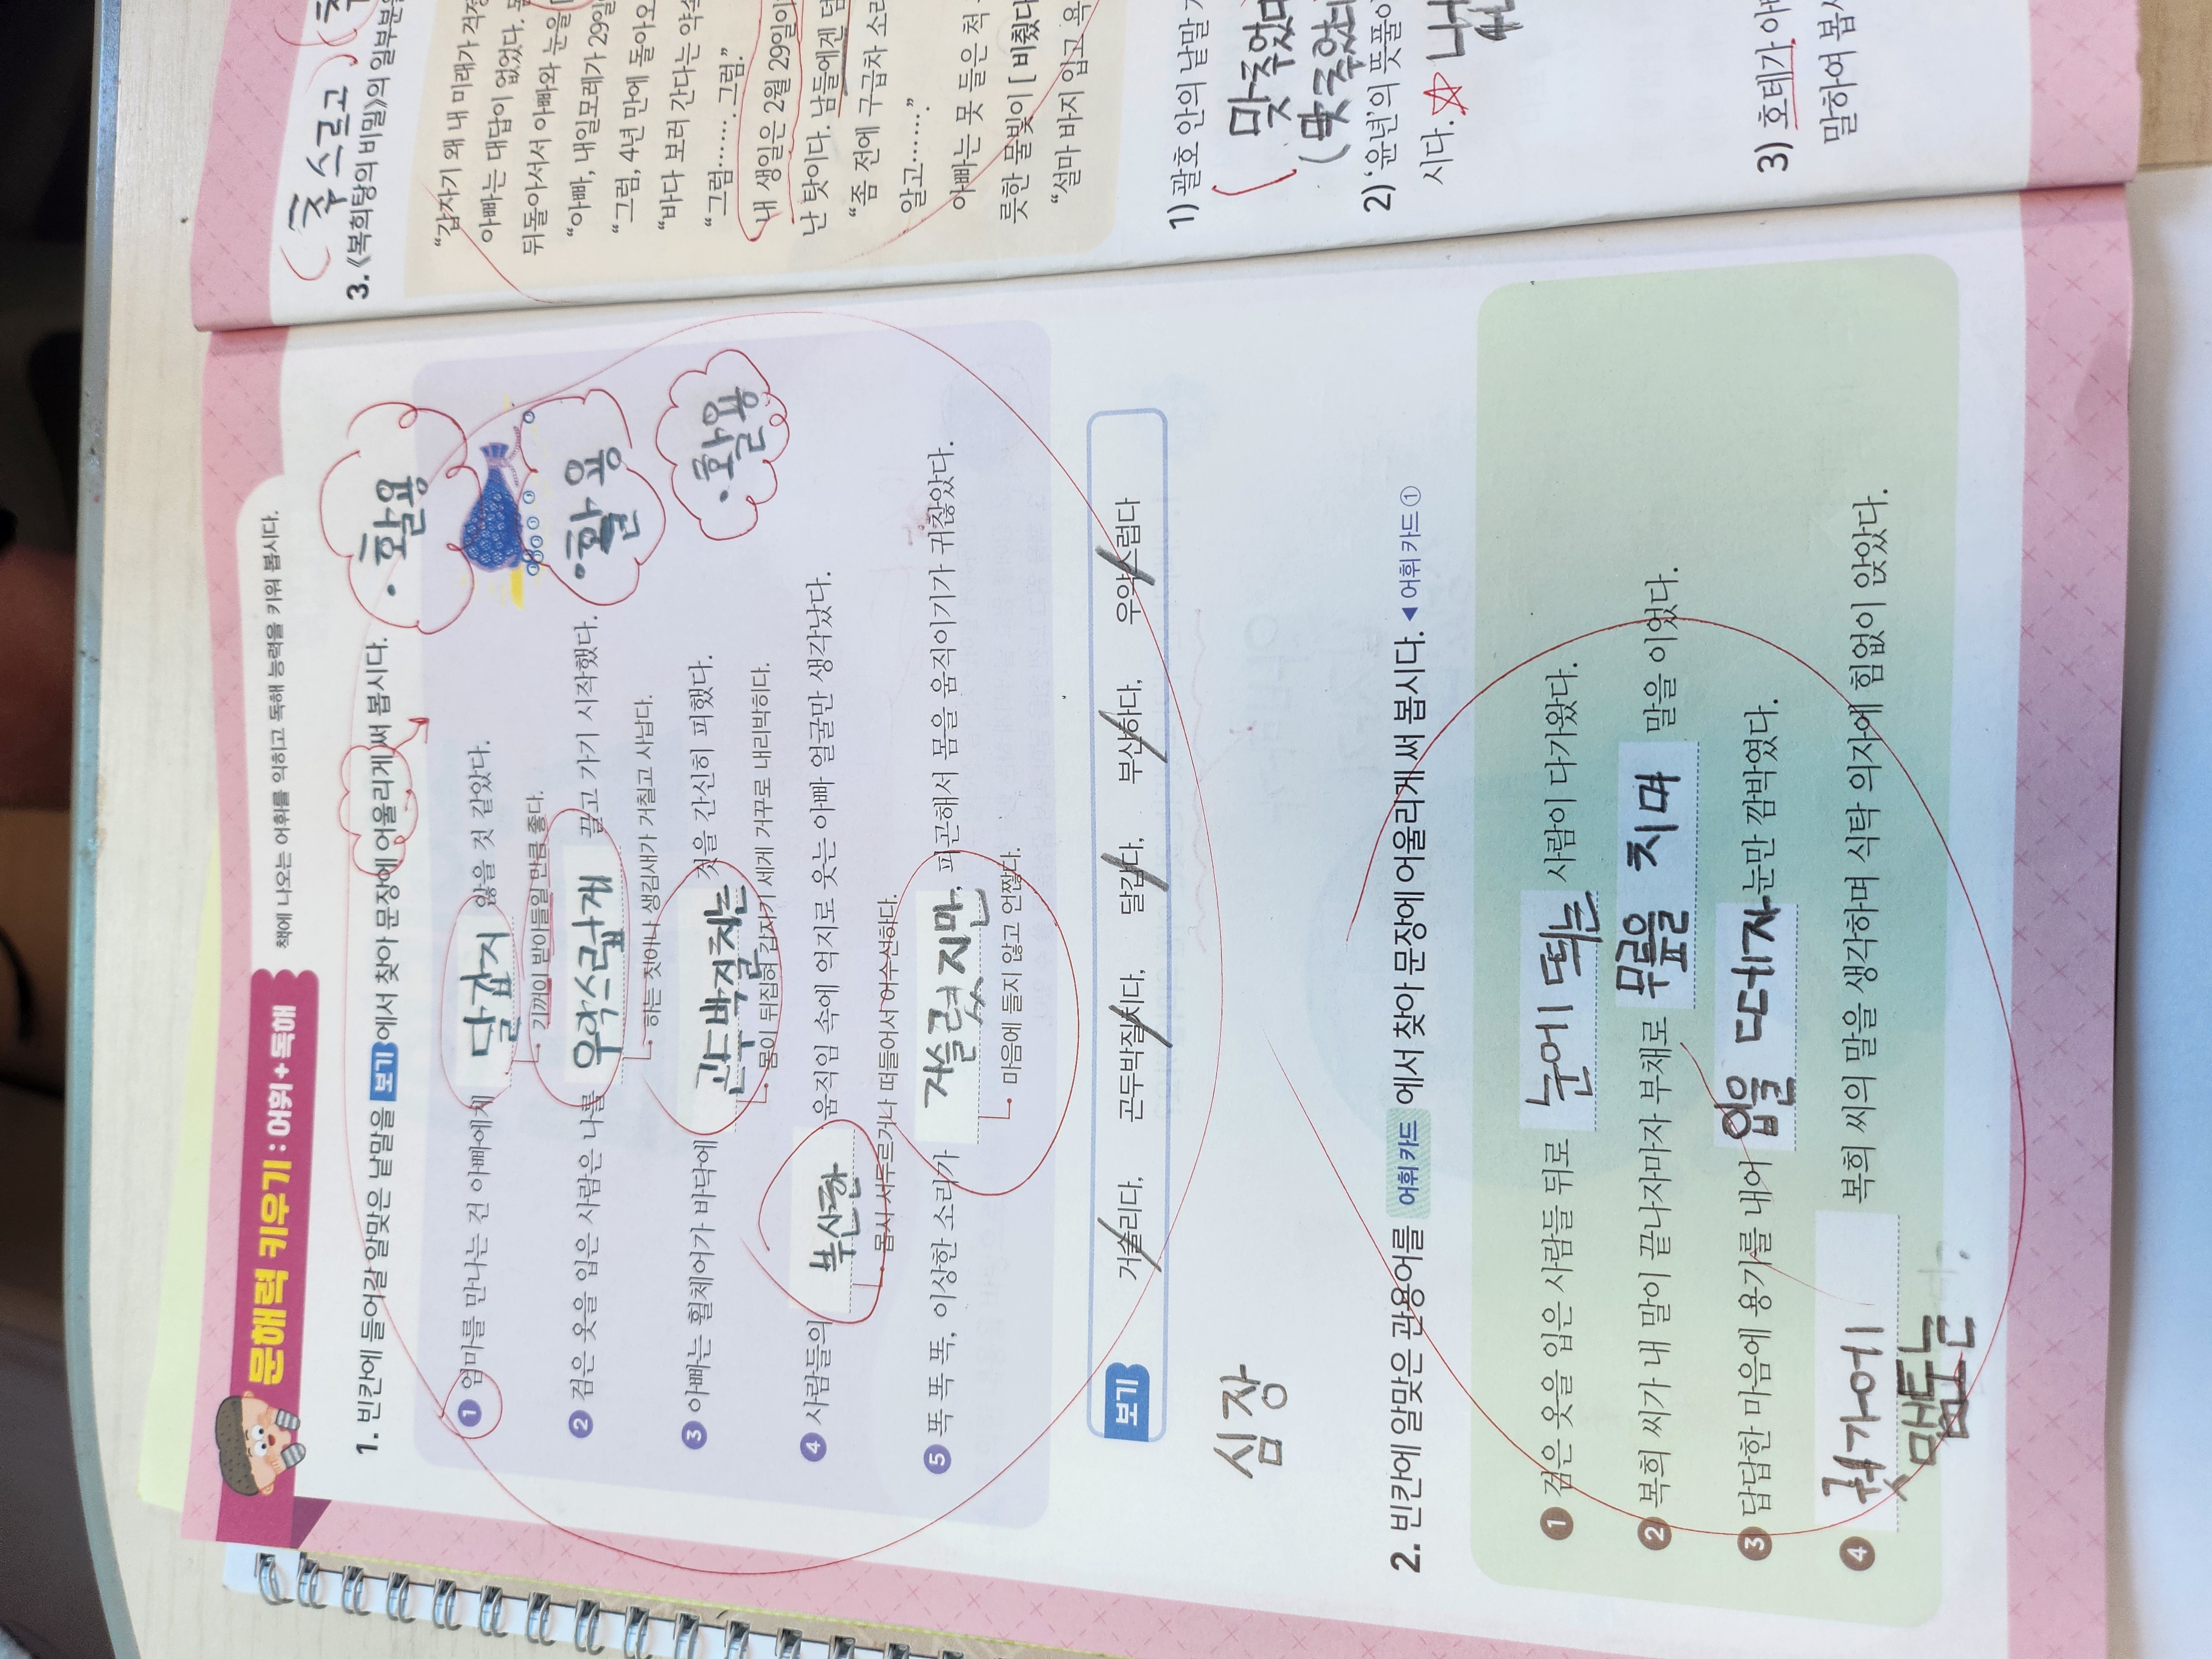 문해력 키우기 : 어휘 + 독해
책에 나오는 어휘를 익히고 독해 능력을 키워 봅시다.
1. 빈칸에 들어갈 알맞은 낱말을 보기 에서 찾아 문장에 어울리게 써 봅시다.
• 활용
1 엄마를 만나는 건 아빠에게 달갑지 않을 것 같았다.
기꺼이 받아들일 만큼 좋다.
2 검은 옷을 입은 사람은 나를 우악스럽게 끌고 가기 시작했다.
• 활용
하는 짓이나 생김새가 거칠고 사납다.
3 아빠는 휠체어가 바닥에 곤두박질치는 것을 간신히 피했다.
• 활용
몸이 뒤집혀 갑자기 세게 거꾸로 내리박히다.
4 사람들의 부산한 움직임 속에 억지로 웃는 아빠 얼굴만 생각났다.
몹시 서두르거나 떠들어서 어수선하다.
5 똑 똑 똑, 이상한 소리가 거슬렸지만, 피곤해서 몸을 움직이기가 귀찮았다.
마음에 들지 않고 언짢다.
보기 거슬리다, 곤두박질치다, 달갑다, 부산하다, 우악스럽다
심장
2. 빈칸에 알맞은 관용어를 어휘 카드 에서 찾아 문장에 어울리게 써 봅시다. ◀ 어휘 카드 ①
1 검은 옷을 입은 사람들 뒤로 눈에 띄는 사람이 다가왔다.
2 복희 씨가 내 말이 끝나자마자 부채로 무릎을 치며 말을 이었다.
3 답답한 마음에 용기를 내어 입을 떼자 눈만 깜박였다.
4 귓가에 맴도는 복희 씨의 말을 생각하며 식탁 의자에 힘없이 앉았다.
(추스르고)
3. 《복희탕의 비밀》의 일부분
“갑자기 왜 내 미래가 걱정
아빠는 대답이 없었다.
뒤돌아서서 아빠와 눈을
“아빠, 내일모레가 29일
“그럼, 4년 만에 돌아오
“바다 보러 간다는 약속
“그럼……. 그럼.”
내 생일은 2월 29일이
난 탓이다. 남들에겐 덤
“좀 전에 구급차 소리
알고…….”
아빠는 못 들은 척
릇한 물빛이 [ 비췄다
“설마 바지 입고 욕
1) 괄호 안의 낱말
맞추었다
2) ‘윤년’의 뜻풀이
시다.
3) 호테가 아
말하여 봅시